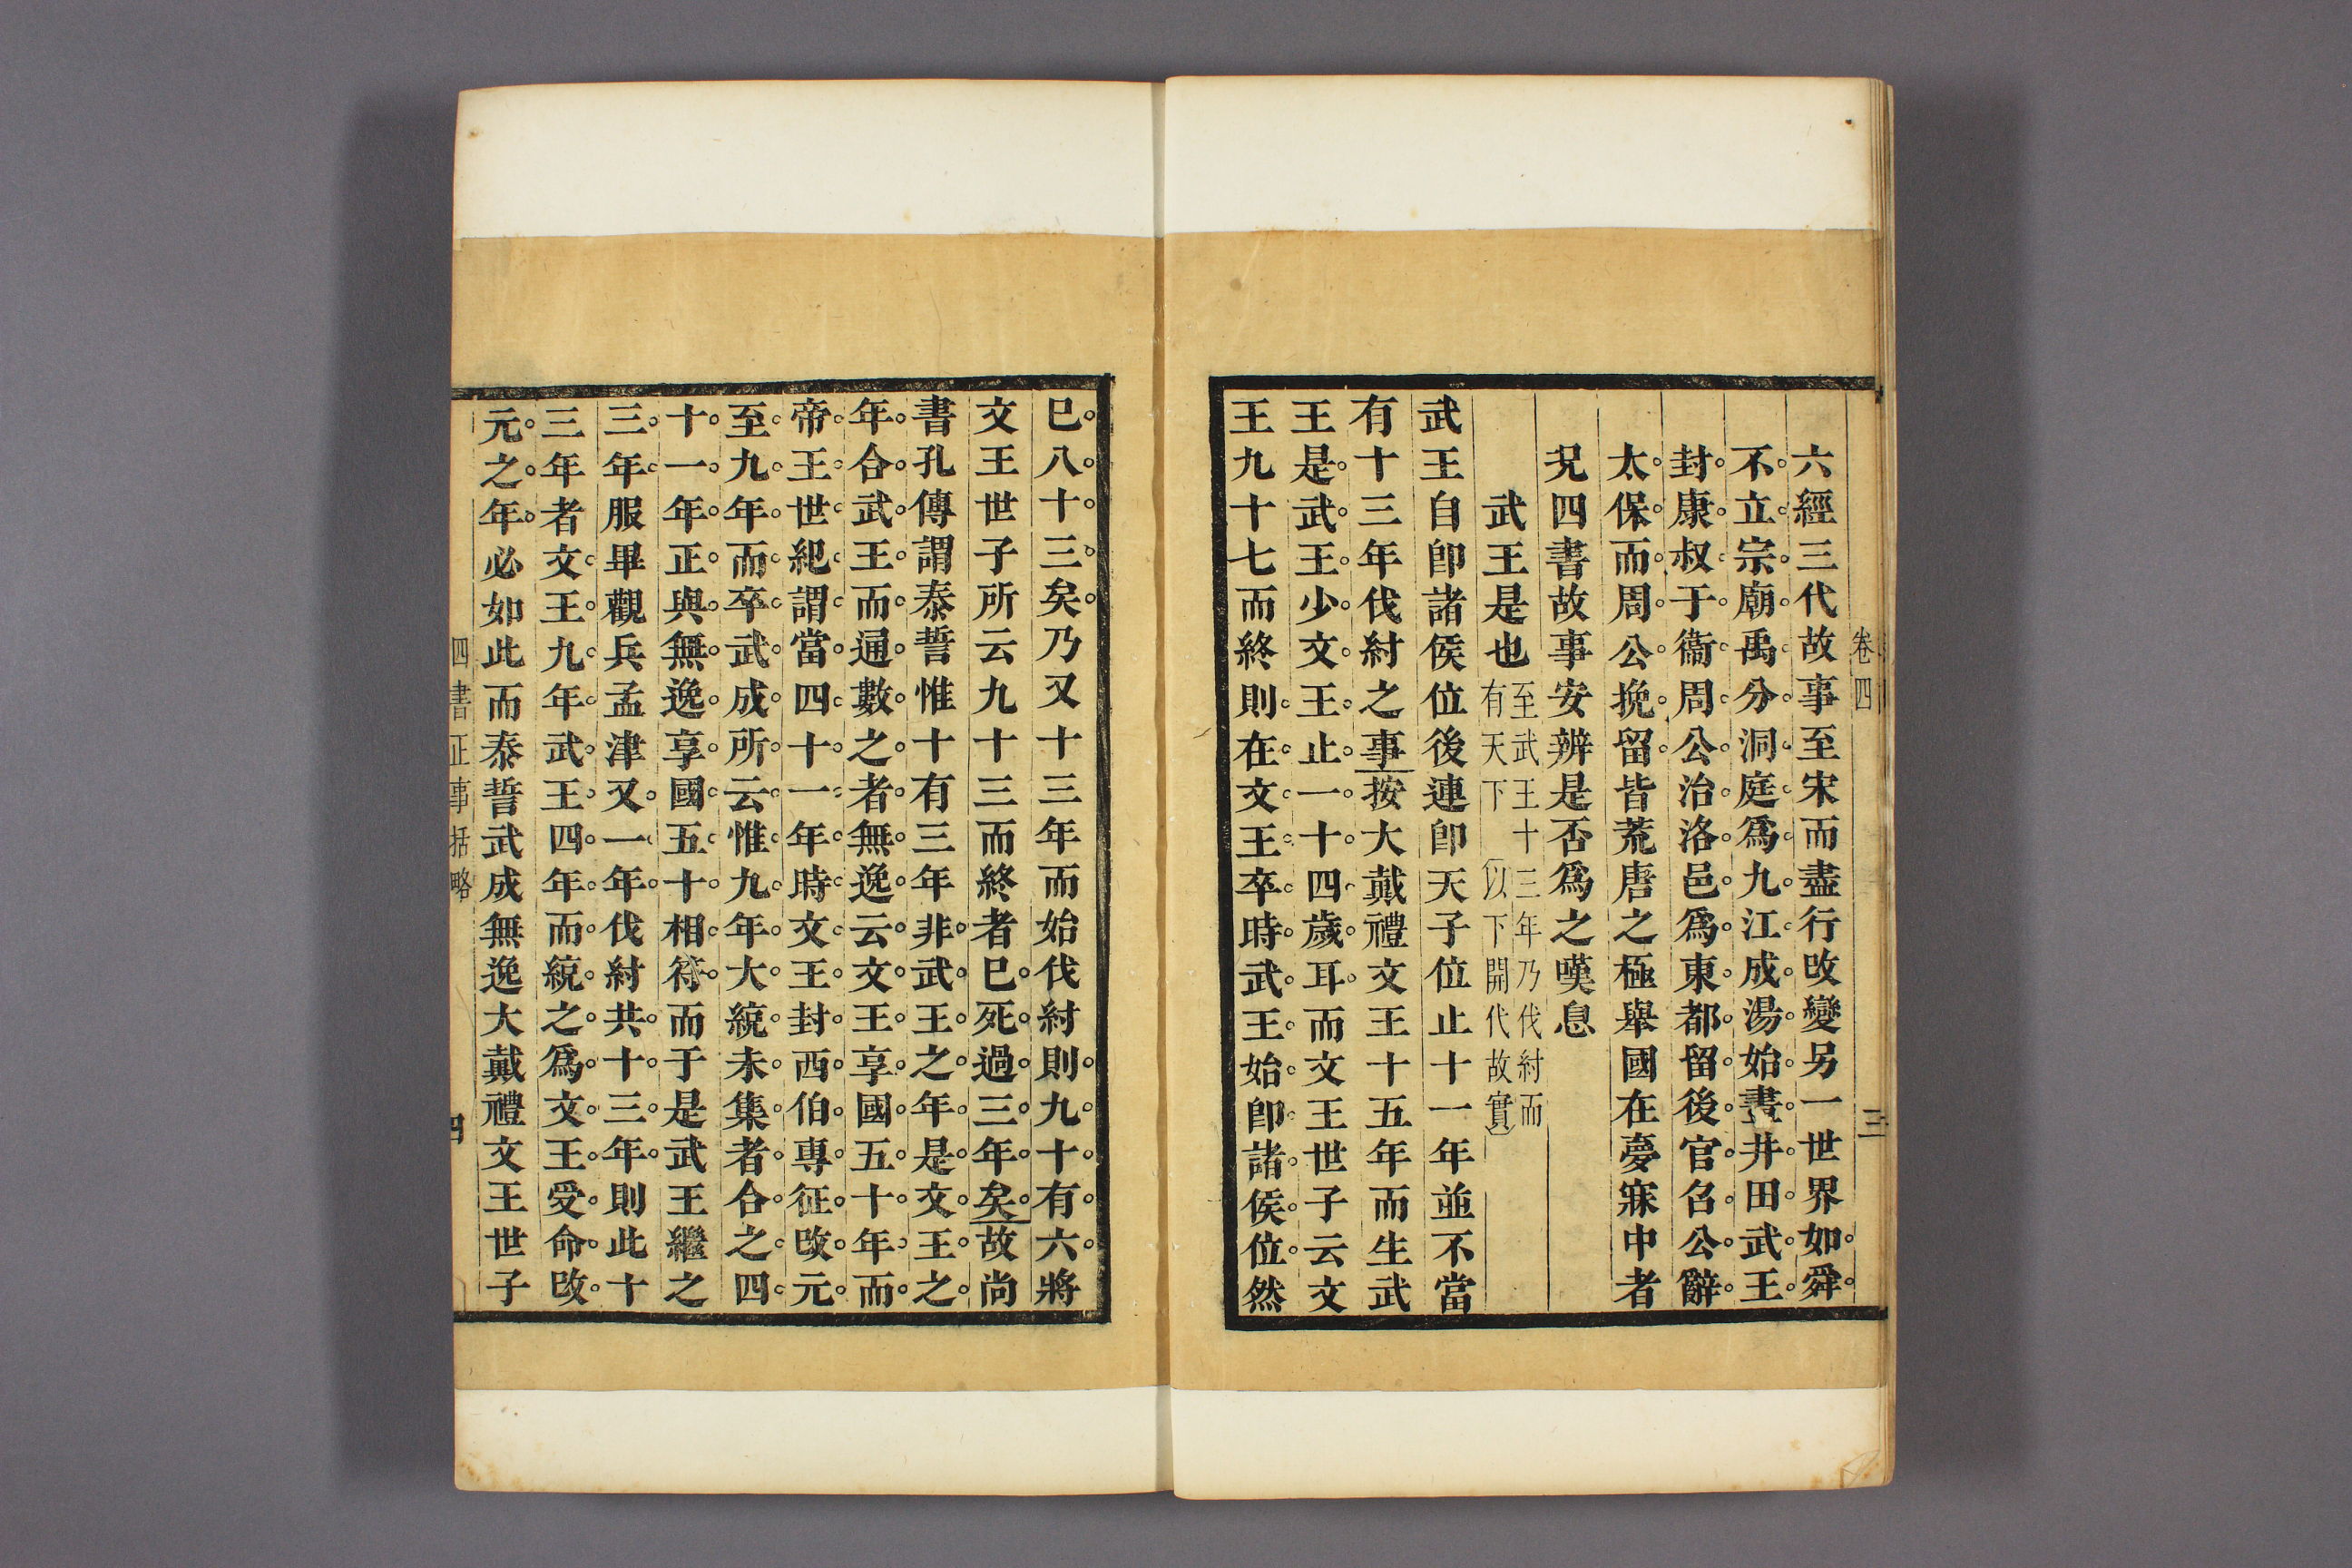 卷四
三
六經三代故事至宋而盡行改變另一世界如舜
不立宗廟禹分洞庭爲九江成湯始書井田武王
封康叔于衞周公治洛邑爲東都留後官召公辭
太保而周公挽留皆荒唐之極舉國在夢寐中者
況四書故事安辨是否爲之嘆息
武王是也
至武王十三年乃伐紂而
有天下 以下開代故實
武王自卽諸侯位後連卽天子位止十一年並不當
有十三年伐紂之事按大戴禮文王十五年而生武
王是武王少文王止一十四歲耳而文王世子云文
王九十七而終則在文王卒時武王始卽諸侯位然
已八十三矣乃又十三年而始伐紂則九十有六將
文王世子所云九十三而終者已死過三年矣故尚
書孔傳謂泰誓惟十有三年非武王之年是文王之
年合武王而通數之者無逸云文王享國五十年而
帝王世紀謂當四十一年時文王封西伯專征改元
至九年而卒武成所云惟九年大統未集者合之四
十一年正與無逸享國五十相符而于是武王繼之
三年服畢觀兵孟津又一年伐紂共十三年則此十
三年者文王九年武王四年而統之爲文王受命改
元之年必如此而泰誓武成無逸大戴禮文王世子
四書正事括略
四